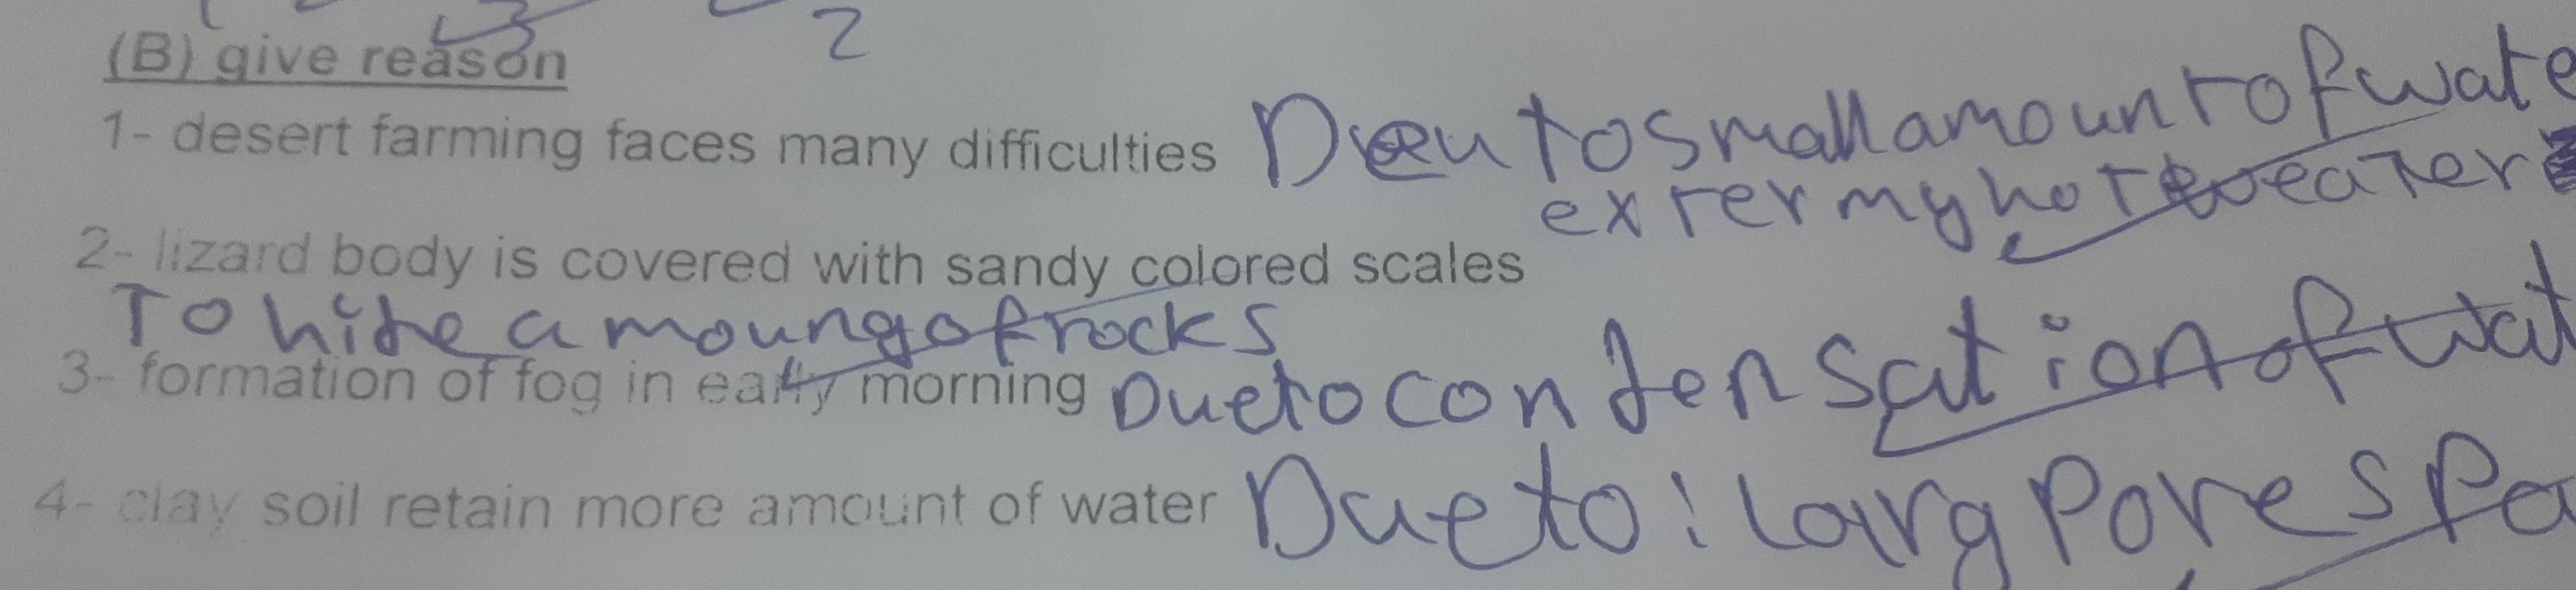 2
(B) give reason
1- desert farming faces many difficulties Deu to small amount of wate
extermy hot weater
2- lizard body is covered with sandy colored scales
To hide a moung of rocks
3- formation of fog in early morning Due to condensation of wat
4- clay soil retain more amount of water Due to : larg pore spa